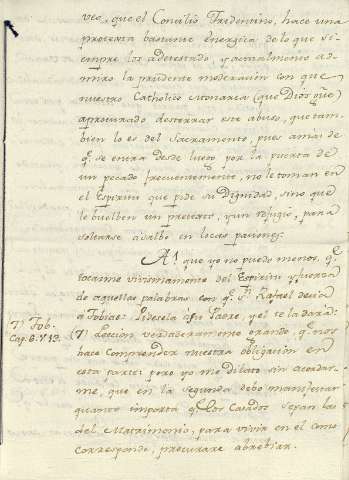 veo, que el Concilio Tridentino, hace una
protexta bastante energica de lo que si-
empre los a detestado, y actualmente ad-
miro la prudente moderacion con que
nuestro Catholico Monarca (que Dios gūe)
a procurado desterrar este abuso, que tam-
bien lo es del Sacramento, pues a mas de
q.e se entra desde luego por la puerta de
un pecado frecuentemente, no le toman en
el Espiritu que pide su Dignidad, sino que
le buelben un pretexto, y un refugio, para
soltarse a salbo en locas paciones.
A que yo no puedo menos, q.e
tocarme vivismamente del Espiritu y fuerza
de aquellas palabras con q.e S.n Rafael decia
a Tobias: Pidesela a su Padre, y el te la dará:
7) Tob.
Cap. 6. V 13.
(7) Leccion verdaderamente grande, q.e nos
hace comprender nuestra obligacion en
esta parte: pero yo me dilato sin acordar-
me, que en la segunda debo manifestar
quanto importa q.e los Casados sepan las
del Matrimonio, para vivir en el como
corresponde, procurare abrebiar.